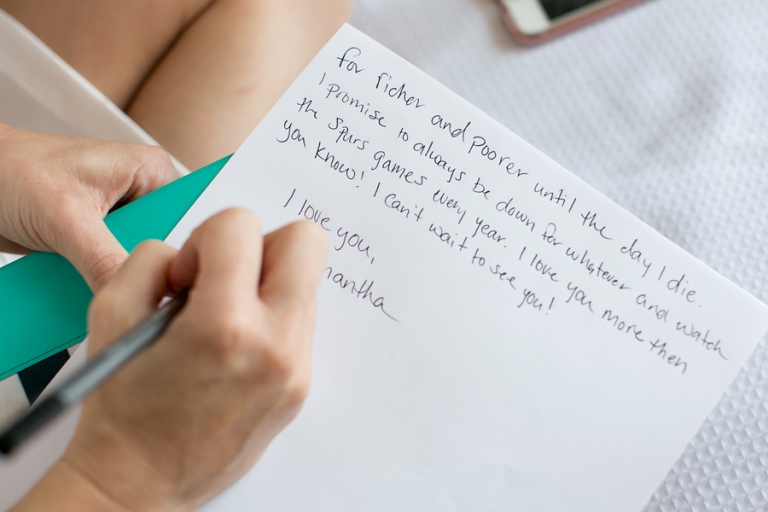 for richer and poorer until the day I die.
I promise to always be down for whatever and watch
the Spurs games every year. I love you more then
you know! I can't wait to see you!
I love you,
mantha